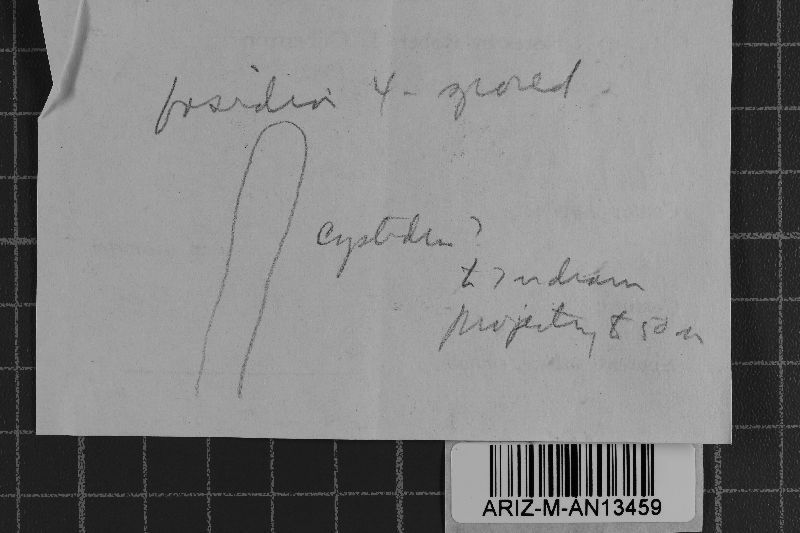 basidia 4-spored.
cystidia?
to 7 u diam
projecting to 50 u
ARIZ-M-AN13459